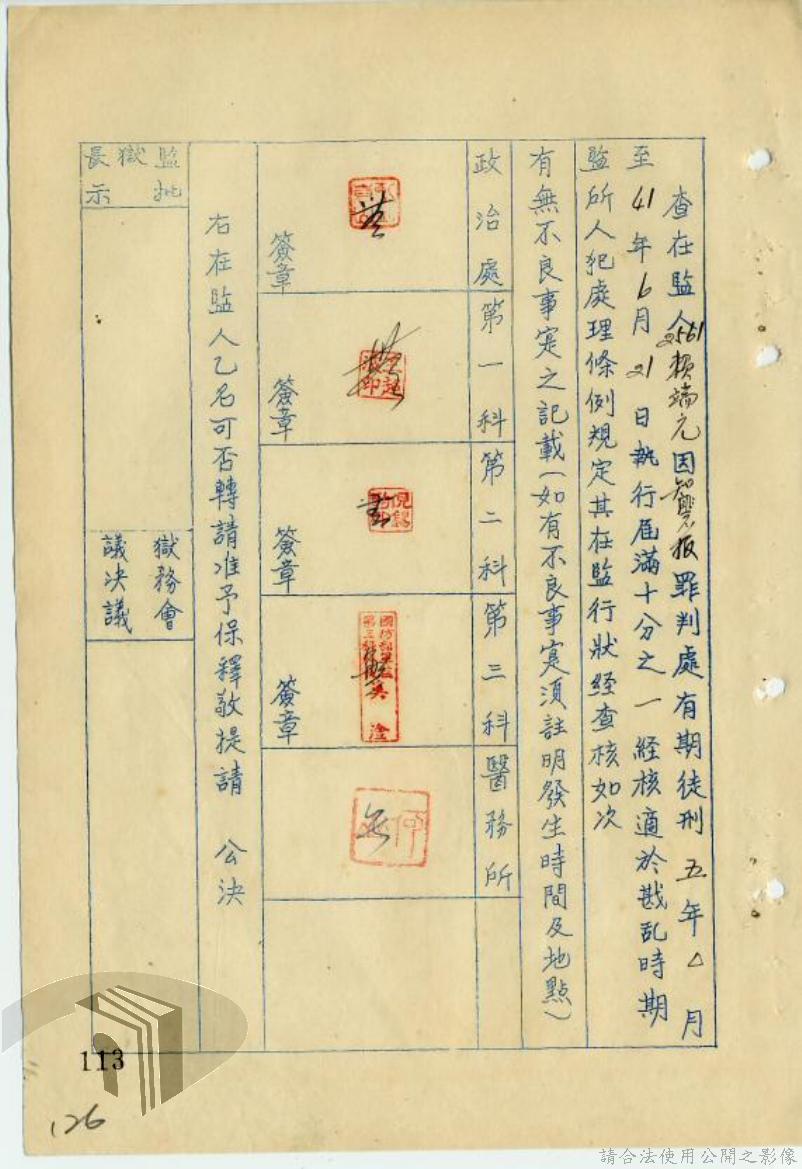 查在監人2561賴端元因智匪不報罪判處有期徒刑五年△月
至41年6月21日執行屆滿十分之一經核適於戡乱時期
監所人犯處理條例規定其在監行狀經查核如次
有無不良事寔之記載(如有不良事寔須註明發生時間及地點)
政治處
第一科
第二科
第三科
醫務所
無
簽章
無
簽章
無
簽章
無
簽章
無
右在監人乙名可否轉請准予保釋敬提請 公決
監獄長
批示
獄務會
議決議
113
126
請合法使用公開之影像